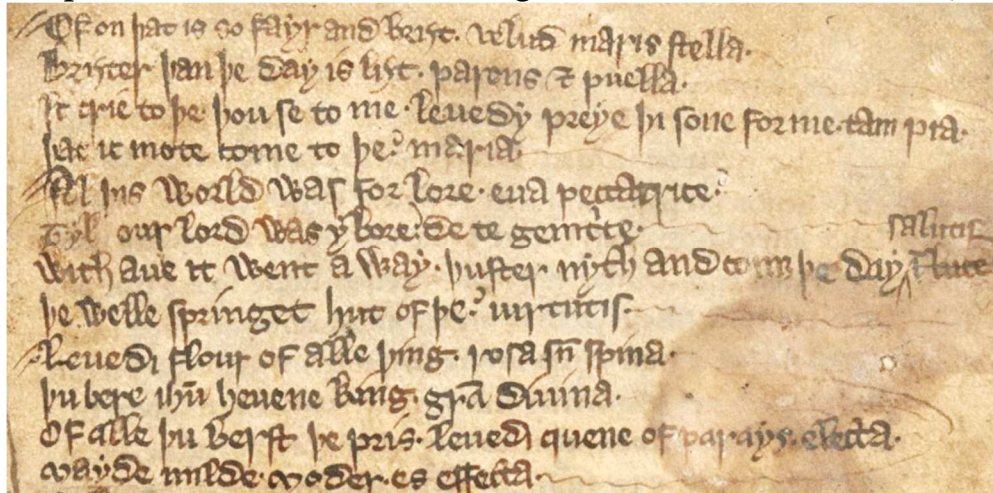 Of on þat is so fayr and briȝt. velud maris stella.
Briȝter þan þe day is liȝt. parens ⁊ puella.
Ic crie to þe. þou se to me. leuedy preye þi sone for me. tam pia.
þat ic mote come to þe. maria.
Al þis world was for lore. eua peccatrice.
Tyl our lord was y bore. de te genitrice.
With aue it went a way. þuster nyth and comȝ þe day salutis
þe welle springet hut of þe. uirtutis.
Leuedi flour of alle þing. rosa sn̄ spina.
þu bere ihū heuene king. gr̄a diuina.
Of alle þu berst þe pris. leuedi quene of parays. electa.
Mayde milde moder. es effecta.